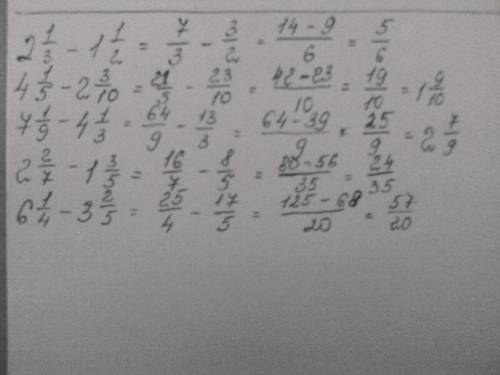 2 1/3 - 1 1/2 = 7/3 - 3/2 = (14 - 9)/6 = 5/6
4 1/5 - 2 3/10 = 21/5 - 23/10 = (42 - 23)/10 = 19/10 = 1 9/10
7 1/9 - 4 1/3 = 64/9 - 13/3 = (64 - 39)/9 = 25/9 = 2 7/9
2 2/7 - 1 3/5 = 16/7 - 8/5 = (80 - 56)/35 = 24/35
6 1/4 - 3 2/5 = 25/4 - 17/5 = (125 - 68)/20 = 57/20